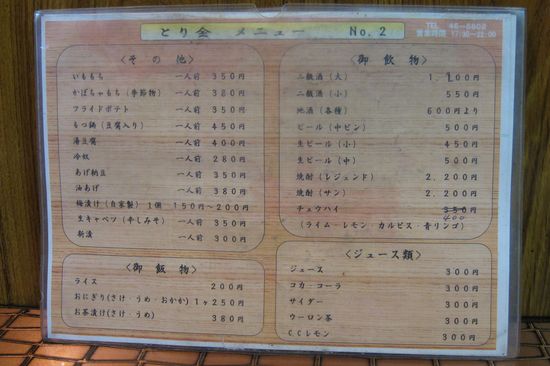 とり金 メニュー No.2
TEL 46-8808
営業時間 17:30~22:00
〈その他〉
いももち 一人前 350円
かぼちゃもち(季節物) 一人前 380円
フライドポテト 一人前 350円
もつ鍋(豆腐入り) 一人前 450円
湯豆腐 一人前 400円
冷奴 一人前 280円
あげ納豆 一人前 350円
油あげ 一人前 380円
梅漬け(自家製)1個 150円~200円
生キャベツ(辛しみそ) 一人前 350円
新漬 一人前 300円
〈御飯物〉
ライス 200円
おにぎり(さけ・うめ・おかか)1ヶ250円
お茶漬け(さけ・うめ) 380円
〈御飲物〉
二級酒(大) 1,100円
二級酒(小) 550円
地酒(各種) 600円より
ビール(中ビン) 500円
生ビール(小) 450円
生ビール(中) 500円
焼酎(レジェンド) 2,200円
焼酎(サン) 2,200円
チュウハイ 350円
400
(ライム・レモン・カルピス・青リンゴ)
〈ジュース類〉
ジュース 300円
コカ・コーラ 300円
サイダー 300円
ウーロン茶 300円
CCレモン 300円